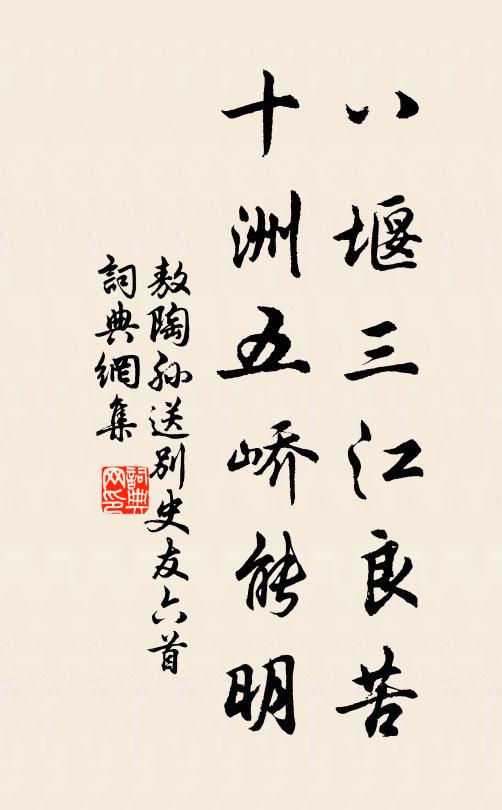 八堰三江良苦
十洲五峤能明
敖陶孙送别史友六首
詞典網集
詞典網印